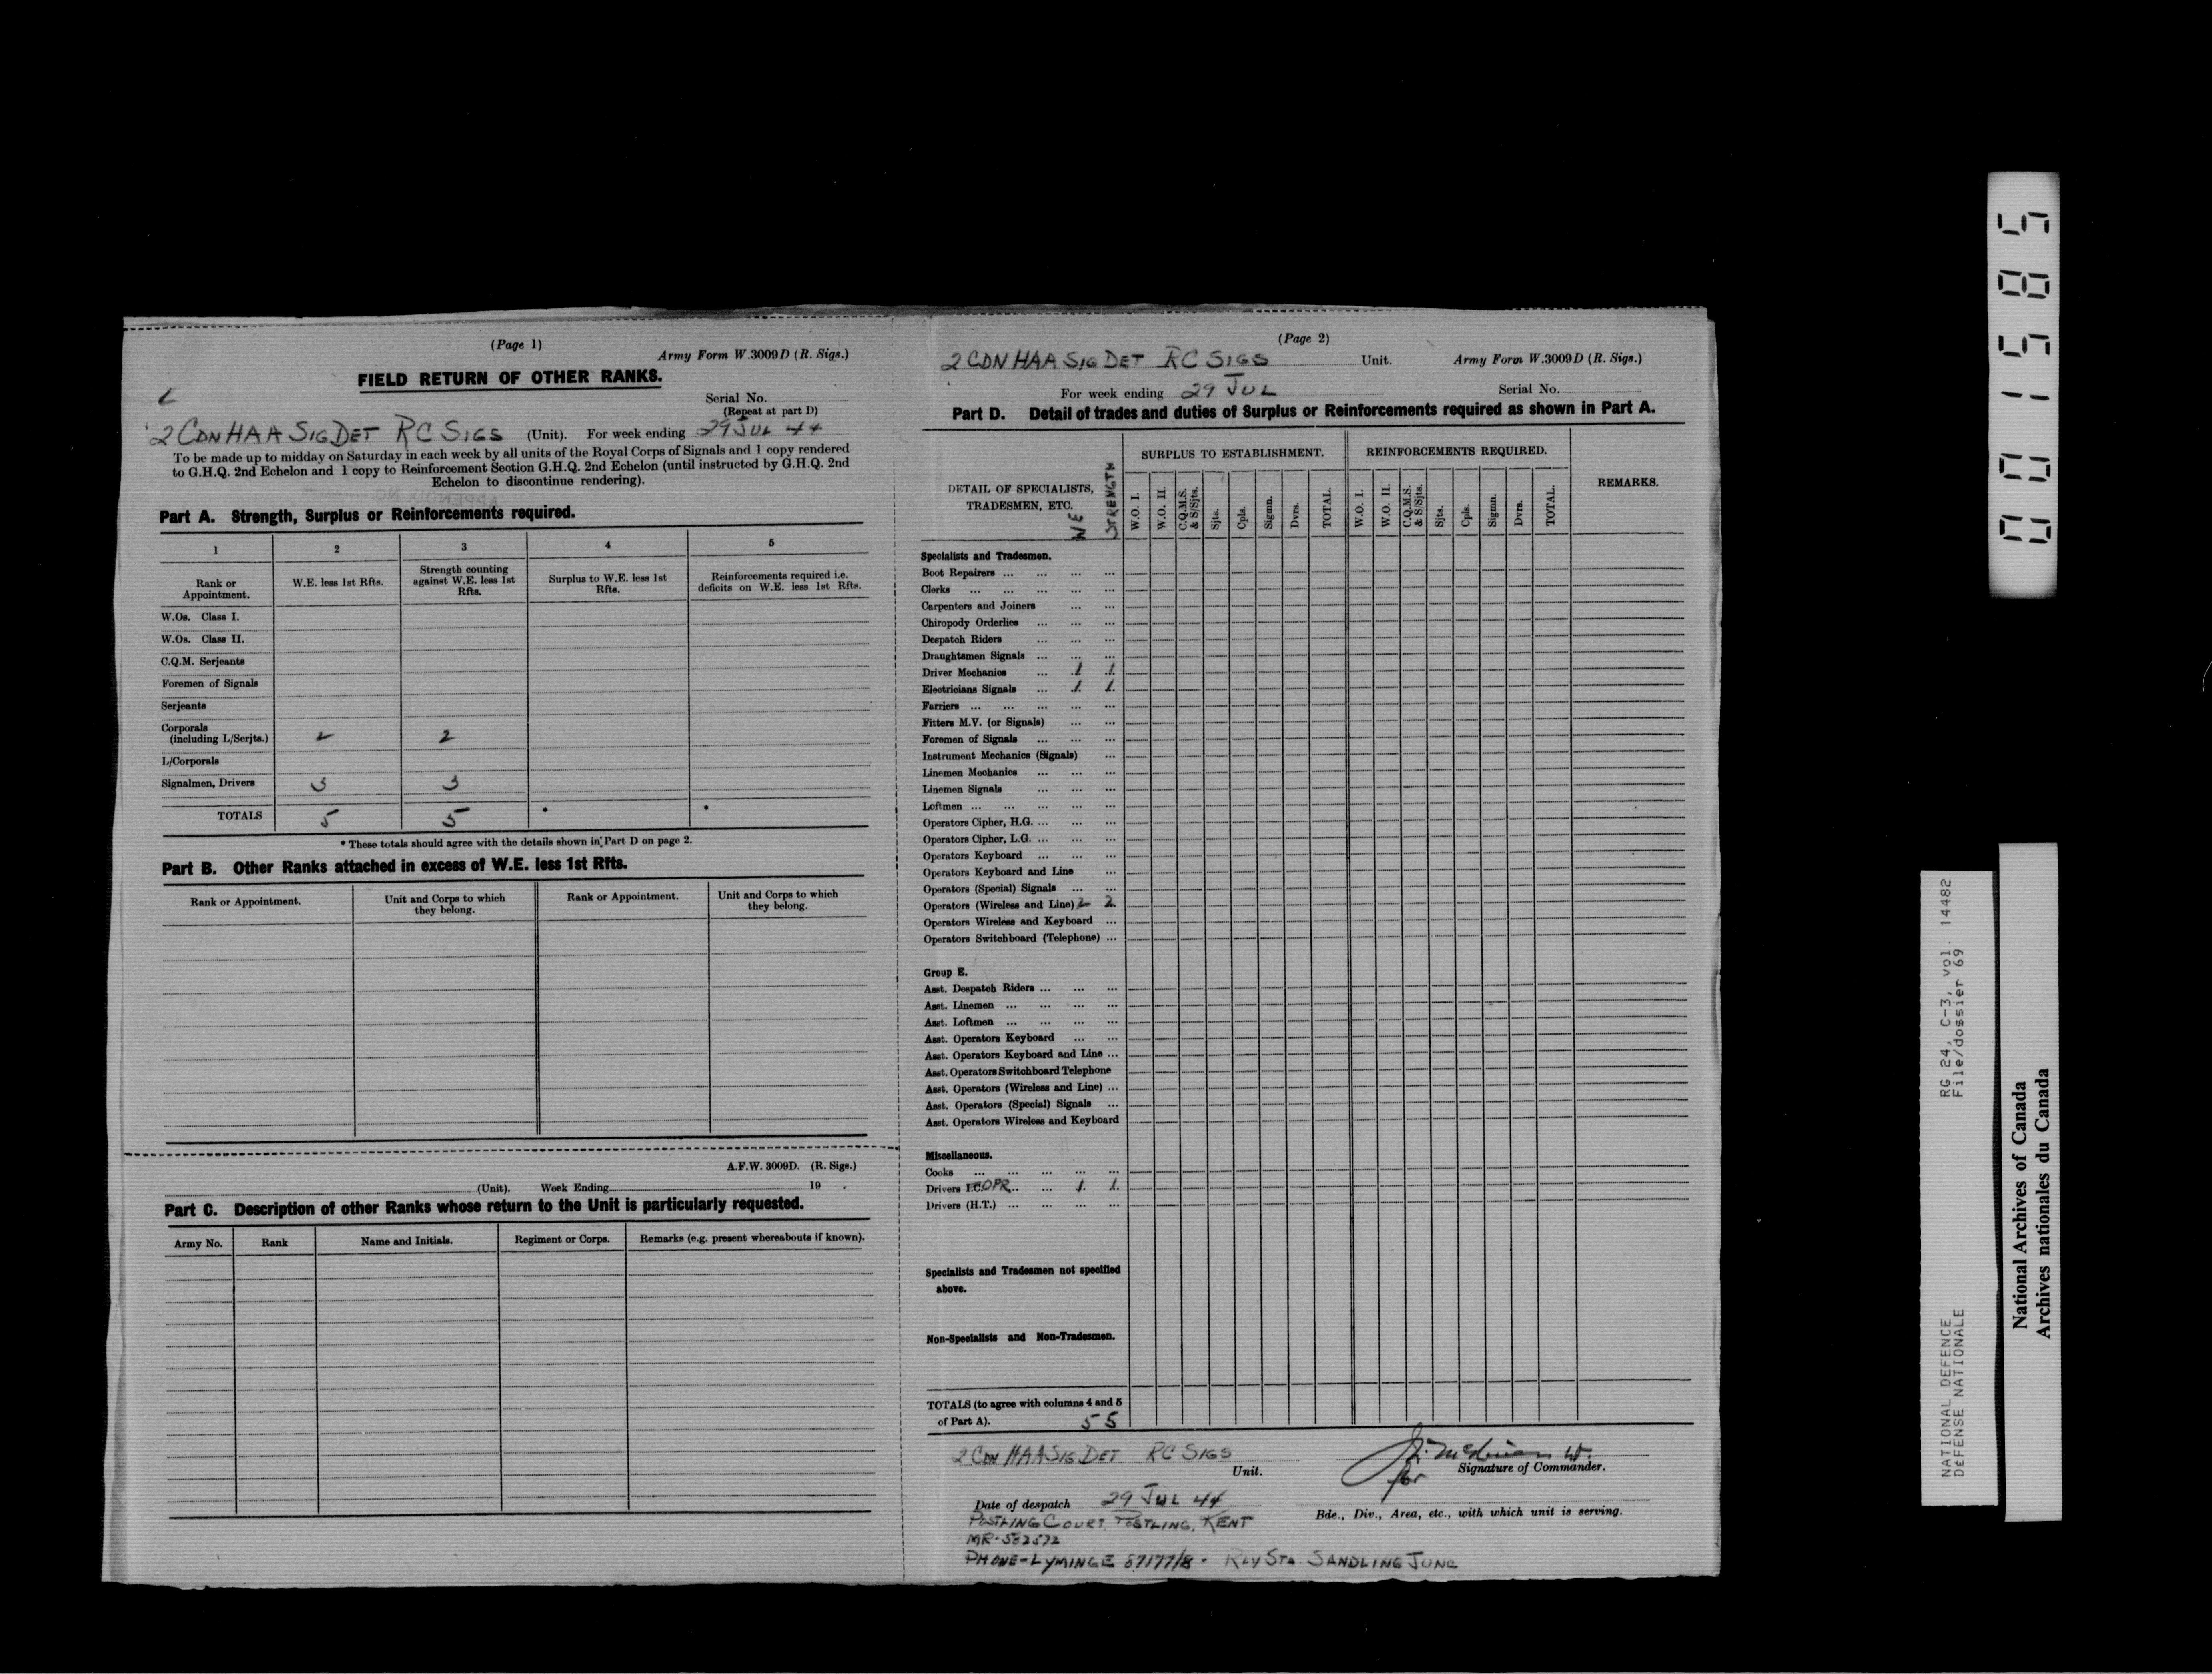 (Page 1)
Army Form W.3009D (R. Sigs.)
FIELD RETURN OF OTHER RANKS.
Serial No.
(Repeat at part D)
2 CDN HAA SIG DET RC SIGS (Unit). For week ending 29 JUL 44
To be made up to midday on Saturday in each week by all units of the Royal Corps of Signals and 1 copy rendered
to G.H.Q. 2nd Echelon and 1 copy to Reinforcement Section G.H.Q. 2nd Echelon (until instructed by G.H.Q. 2nd
Echelon to discontinue rendering).
Part A. Strength, Surplus or Reinforcements required.
1 2 3 4 5
Rank or Appointment. W.E. less 1st Rfts. Strength counting against W.E. less 1st Rfts. Surplus to W.E. less 1st Rfts. Reinforcements required i.e. deficits on W.E. less 1st Rfts.
W.Os. Class I.
W.Os. Class II.
C.Q.M. Serjeants
Foremen of Signals
Serjeants
Corporals
(including L/Serjts.) 2 2
L/Corporals
Signalmen, Drivers 3 3
TOTALS 5 5 * *
* These totals should agree with the details shown in Part D on page 2.
Part B. Other Ranks attached in excess of W.E. less 1st Rfts.
Rank or Appointment. Unit and Corps to which they belong. Rank or Appointment. Unit and Corps to which they belong.
A.F.W. 3009D. (R. Sigs.)
(Unit). Week Ending 19 .
Part C. Description of other Ranks whose return to the Unit is particularly requested.
Army No. Rank Name and Initials. Regiment or Corps. Remarks (e.g. present whereabouts if known).
(Page 2)
2 CDN HAA SIG DET RC SIGS Unit. Army Form W.3009D (R. Sigs.)
For week ending 29 JUL Serial No.
Part D. Detail of trades and duties of Surplus or Reinforcements required as shown in Part A.
DETAIL OF SPECIALISTS, TRADESMEN, ETC. WE STRENGTH SURPLUS TO ESTABLISHMENT. REINFORCEMENTS REQUIRED. REMARKS.
W.O. I. W.O. II. C.Q.M.S. & S/Sjts. Sjts. Cpls. Sigmn. Dvrs. TOTAL. W.O. I. W.O. II. C.Q.M.S. & S/Sjts. Sjts. Cpls. Sigmn. Dvrs. TOTAL.
Specialists and Tradesmen.
Boot Repairers ... ... ... ...
Clerks ... ... ... ... ...
Carpenters and Joiners ... ...
Chiropody Orderlies ... ... ...
Despatch Riders ... ... ...
Draughtsmen Signals ... ... ...
Driver Mechanics ... 1 1
Electricians Signals ... 1 1
Farriers ... ... ... ... ...
Fitters M.V. (or Signals) ... ...
Foremen of Signals ... ... ...
Instrument Mechanics (Signals) ...
Linemen Mechanics ... ... ...
Linemen Signals ... ... ...
Loftmen ... ... ... ... ...
Operators Cipher, H.G. ... ... ...
Operators Cipher, L.G. ... ... ...
Operators Keyboard ... ... ...
Operators Keyboard and Line ...
Operators (Special) Signals ... ...
Operators (Wireless and Line) 2 2
Operators Wireless and Keyboard ...
Operators Switchboard (Telephone) ...
Group E.
Asst. Despatch Riders ... ... ...
Asst. Linemen ... ... ... ...
Asst. Loftmen ... ... ... ...
Asst. Operators Keyboard ... ...
Asst. Operators Keyboard and Line ...
Asst. Operators Switchboard Telephone
Asst. Operators (Wireless and Line) ...
Asst. Operators (Special) Signals ...
Asst. Operators Wireless and Keyboard
Miscellaneous.
Cooks ... ... ... ... ...
Drivers I.C. OPR ... ... 1 1
Drivers (H.T.) ... ... ... ...
Specialists and Tradesmen not specified
above.
Non-Specialists and Non-Tradesmen.
TOTALS (to agree with columns 4 and 5
of Part A). 5 5
2 CDN HAA SIG DET RC SIGS
Unit.
for
Signature of Commander.
Date of despatch 29 JUL 44
Bde., Div., Area, etc., with which unit is serving.
POSTLING COURT, POSTLING, KENT
MR-582572
PHONE-LYMINGE 87177/8 - RLY STA. SANDLING JUNC
001585
RG 24, C-3, vol. 14482
File/dossier 69
NATIONAL DEFENCE
DÉFENSE NATIONALE
National Archives of Canada
Archives nationales du Canada